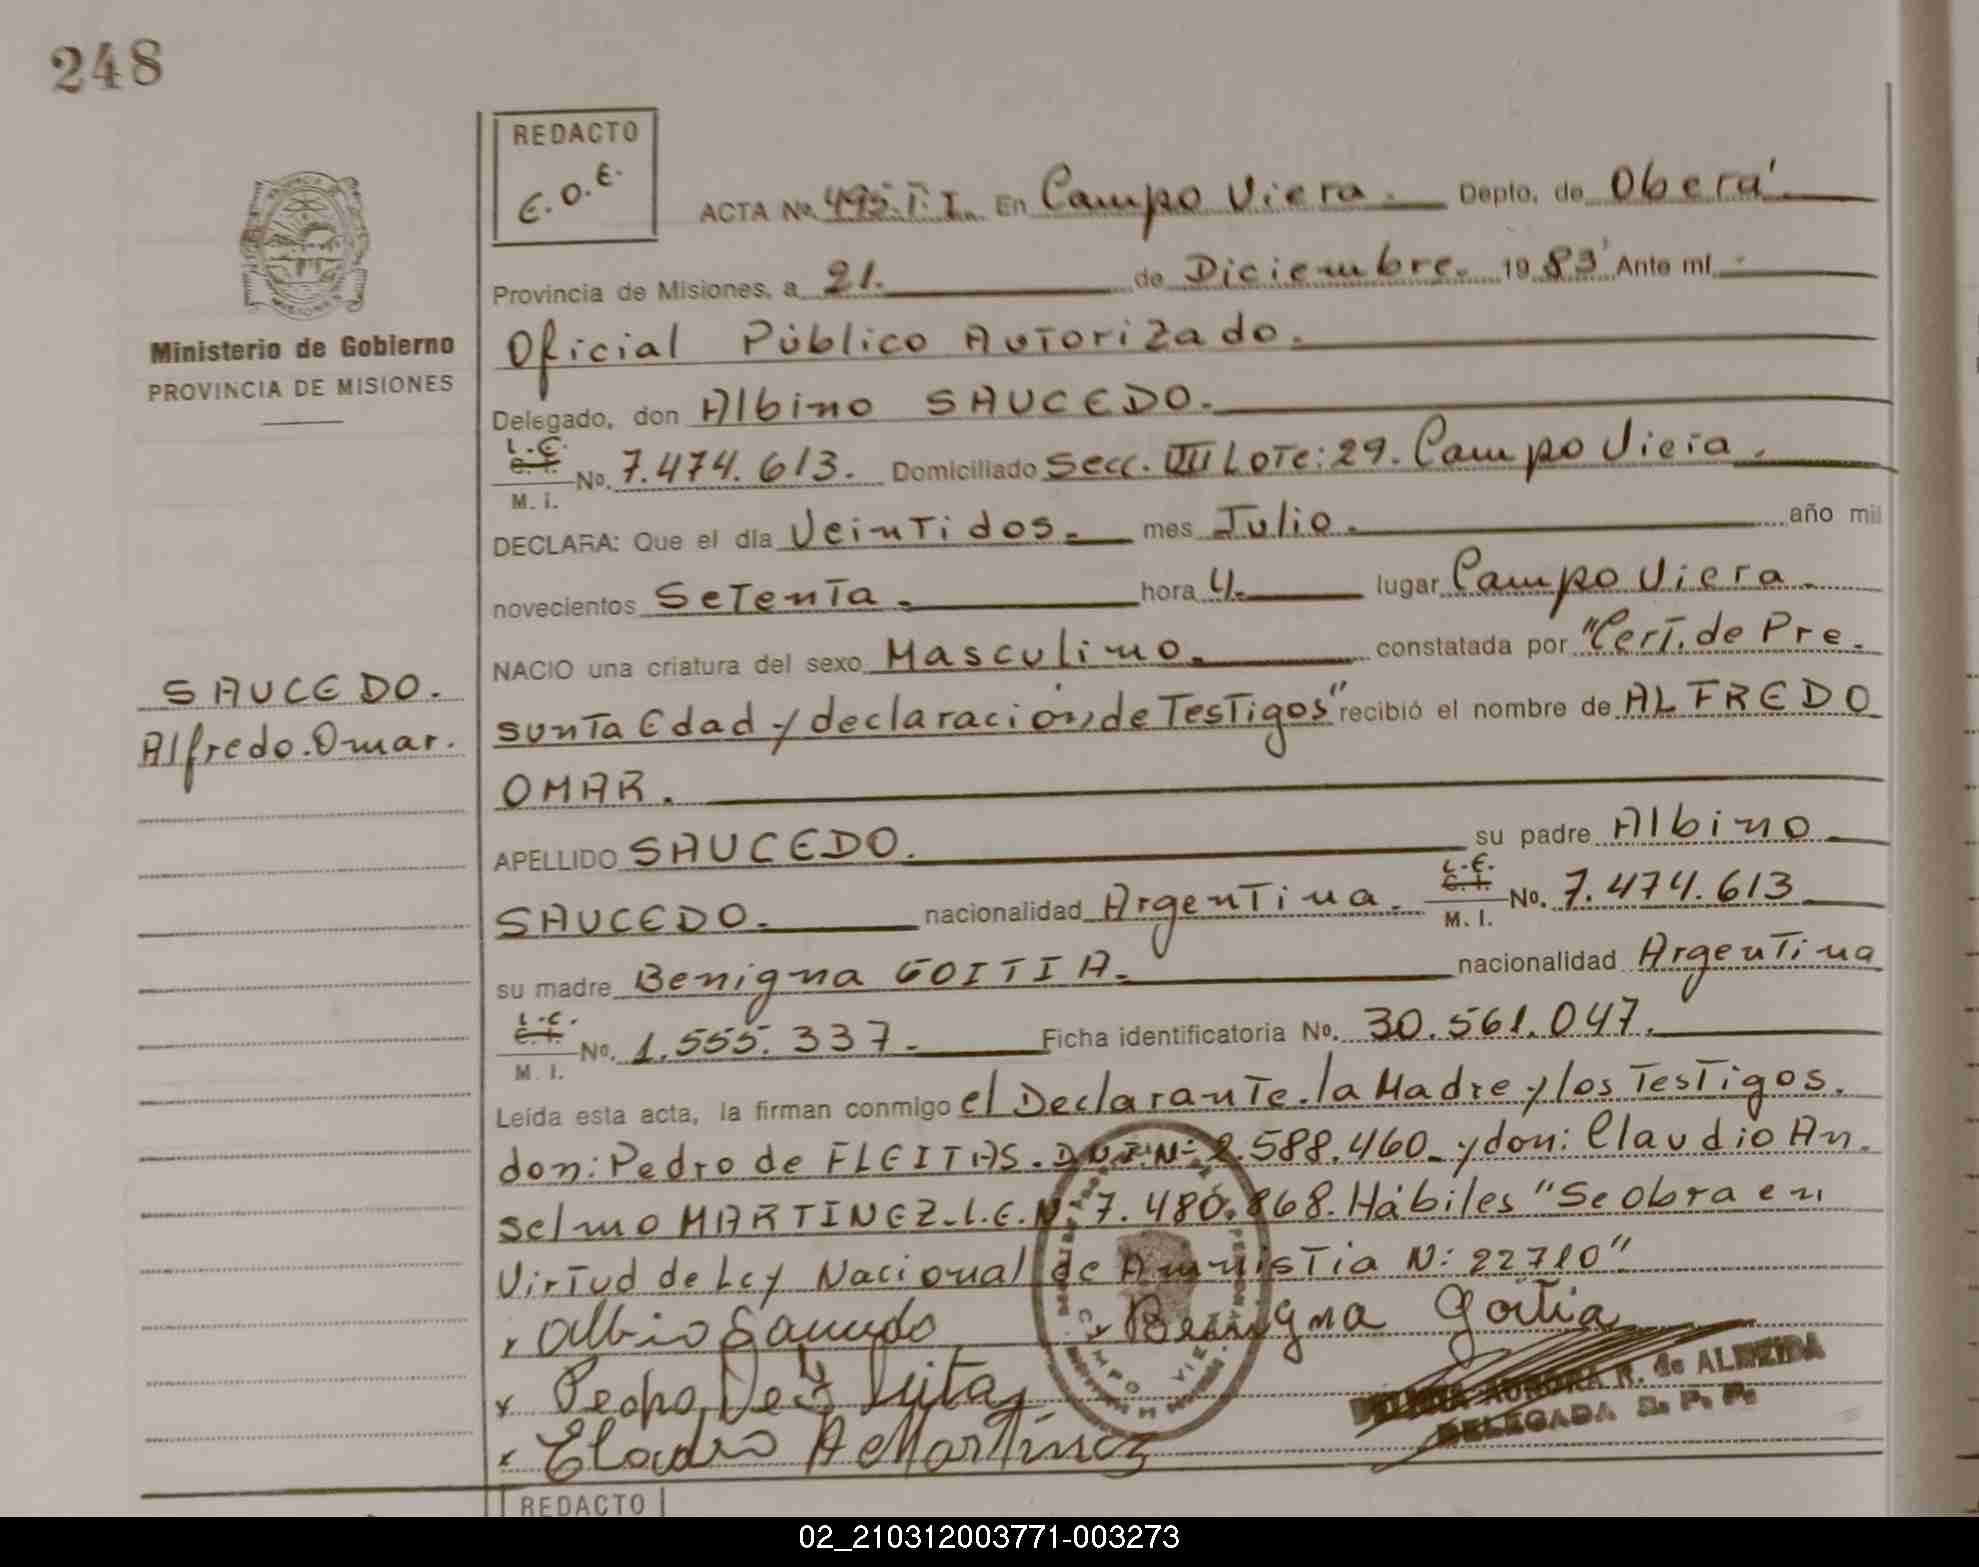 248
REDACTO
E.O.E.
ACTA No. 495.T.I. En Campo Viera. Depto. de Oberá.
Provincia de Misiones, a 21. de Diciembre. 1983 Ante mí.
Ministerio de Gobierno
PROVINCIA DE MISIONES
Oficial Público Autorizado.
Delegado, don Albino SAUCEDO.
L.E.
C. I.
M. I.
No. 7.474.613. Domiciliado Secc. VIII Lote: 29. Campo Viera.
DECLARA: Que el día Veintidos. mes Julio. año mil
novecientos Setenta. hora 4. lugar Campo Viera.
NACIO una criatura del sexo Masculino. constatada por "Cert. de Pre-
SAUCEDO.
Alfredo Omar.
sunta Edad y declaración de Testigos" recibió el nombre de ALFREDO
OMAR.
APELLIDO SAUCEDO. su padre Albino
SAUCEDO. nacionalidad Argentina. L.E. C. I. M. I. No. 7.474.613
su madre Benigna GOITIA. nacionalidad Argentina
L.C.
C. I.
M. I.
No. 1.555.337. Ficha identificatoria No. 30.561.047.
Leída esta acta, la firman conmigo el Declarante. la Madre y los Testigos.
don: Pedro de FLEITAS. D.N.I. N: 2.588.460. y don: Claudio An-
selmo MARTINEZ. L.E. N: 7.480.868. Hábiles "Se obra en
Virtud de Ley Nacional de Amnistia N: 22710"
Albino Saucedo Benigna Goitia
Pedro De Fleitas
AURORA R. de ALMEIDA
DELEGADA R. P. P.
Claudio A Martinez
REDACTO
02_210312003771-003273